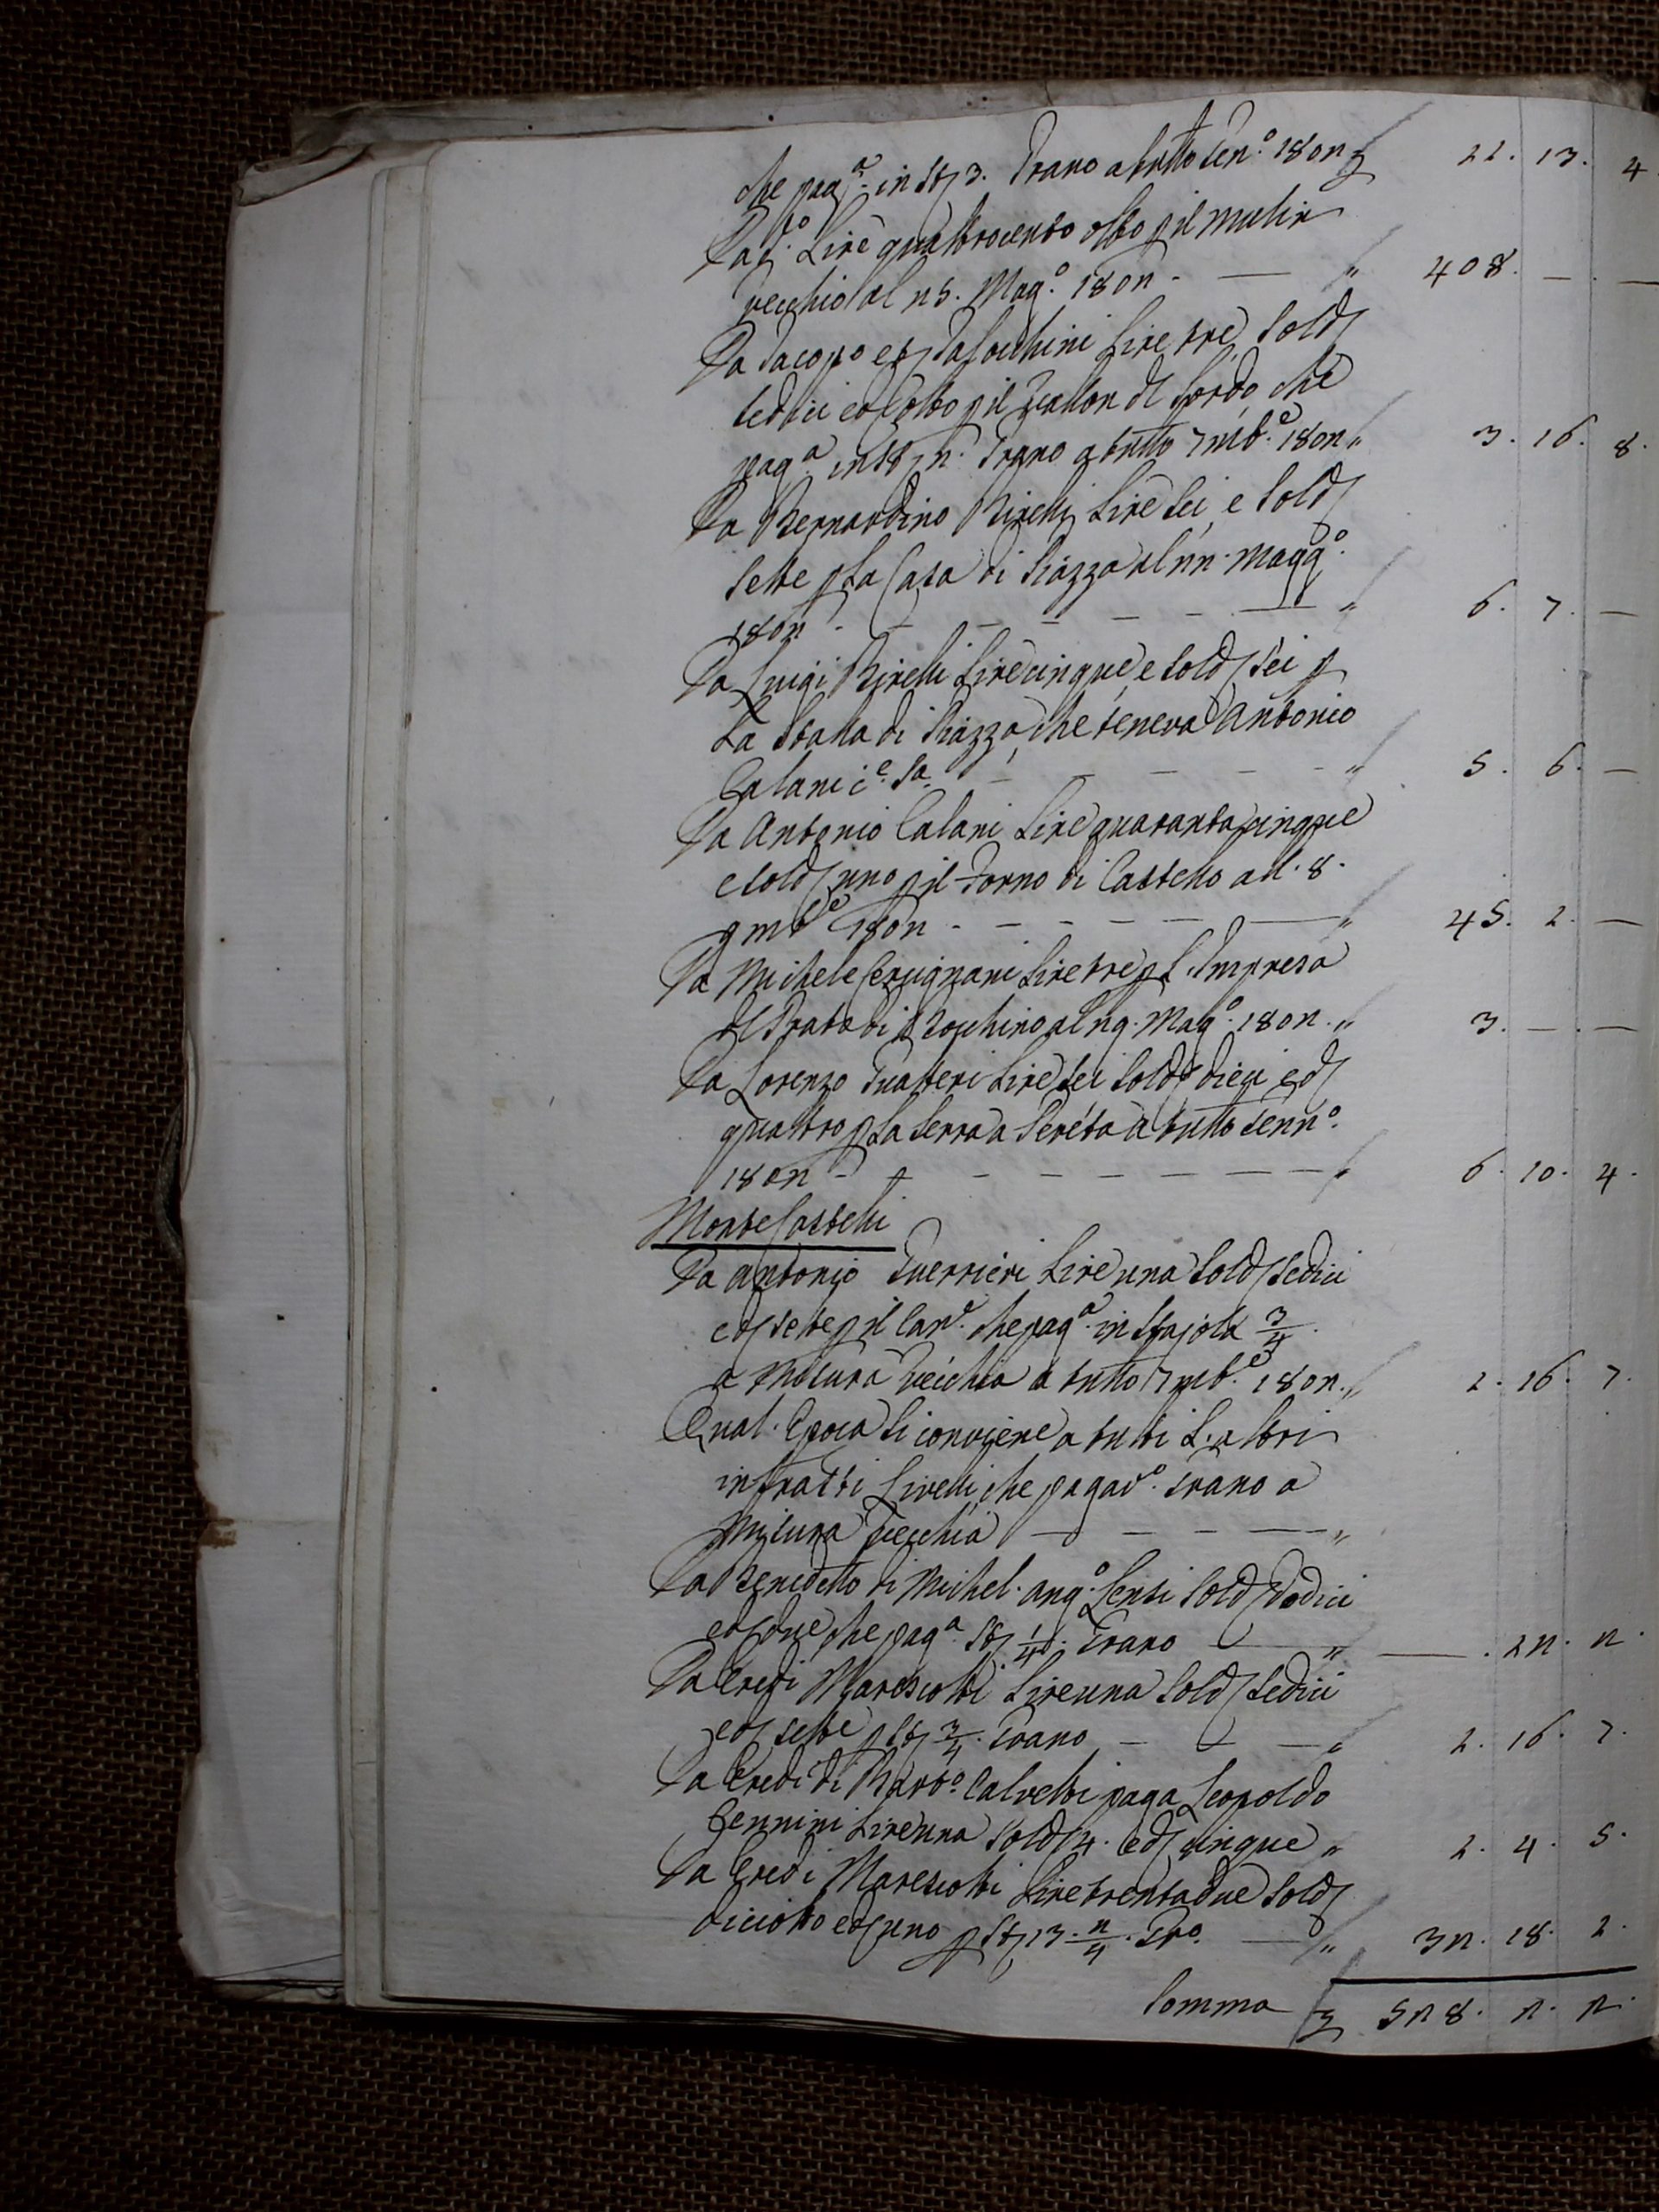 che pag.ª in St 3. Grano a tutto Gen.º 1802 £ 11. 13. 4
Da d.º Lire quattrocento otto p il Mulin
vecchio al 25. Mag.º 1802 - — „ 408. — . —
Da Jacopo e Salocchini Lire tre, Sold
sedici ed otto p il Vallon del Sordo, che
pag.ª in St 2. Grano a tutto 7mb.e 1802 „ 3. 16. 8.
Da Bernardino Birelli Lire Sei, e Sold
Sette p La Casa di Piazza al 22. Magg.º
1802 - — — — — — „ 6. 7. —
Da Luigi Birelli Lire cinque, e Sold Sei p
La Stalla di Piazza, che teneva Antonio
Calani — — — — „ 5. 6. —
Da Antonio Calani Lire quarantacinque
e Sold uno p il Forno di Castello al. 8.
9mb.e 1802 - — — — — — „ 45. 1. —
Da Michele Cerugnani Lire tre p L'Impresa
del Prato di Bocchino al 29. Mag.º 1802. „ 3. — . —
Da Lorenzo Gualteri Lire Sei Sold dieci ed
quattro p La Serra a Sereta a tutto Genn.º
1802 - — — — — — — „ 6. 10. 4.
Monte Castelli
Da Antonio Guerrieri Lire una Sold Sedici
ed sette p il Can.e che pag.ª in Stajola 3/4.
a Misura Vecchia a tutto 7mb.e 1802. „ 1. 16. 7.
Qual. Epoca Si conviene a tutti L. altri
infratti Livelli, che pagav.º Grano a
Misura Vecchia — — — — „
Da Benedetto di Michel. Ang.º Lensi Sold Dodici
ed due che pag.ª St 1/4. Grano — „ — . 12. 2.
Da Eredi Marescotti Lire una Sold Sedici
ed sette p St 3/4. Grano — — — „ 1. 16. 7.
Da Eredi di Bart.º Calvetti paga Leopoldo
Gennini Lire una Sold 4. ed cinque „ 1. 4. 5.
Da Eredi Marescotti Lire trentadue Sold
diciotto ed uno p St 13. 2/4. Gr.º — „ 32. 18. 1.
Somma £ 528. 2. 2.